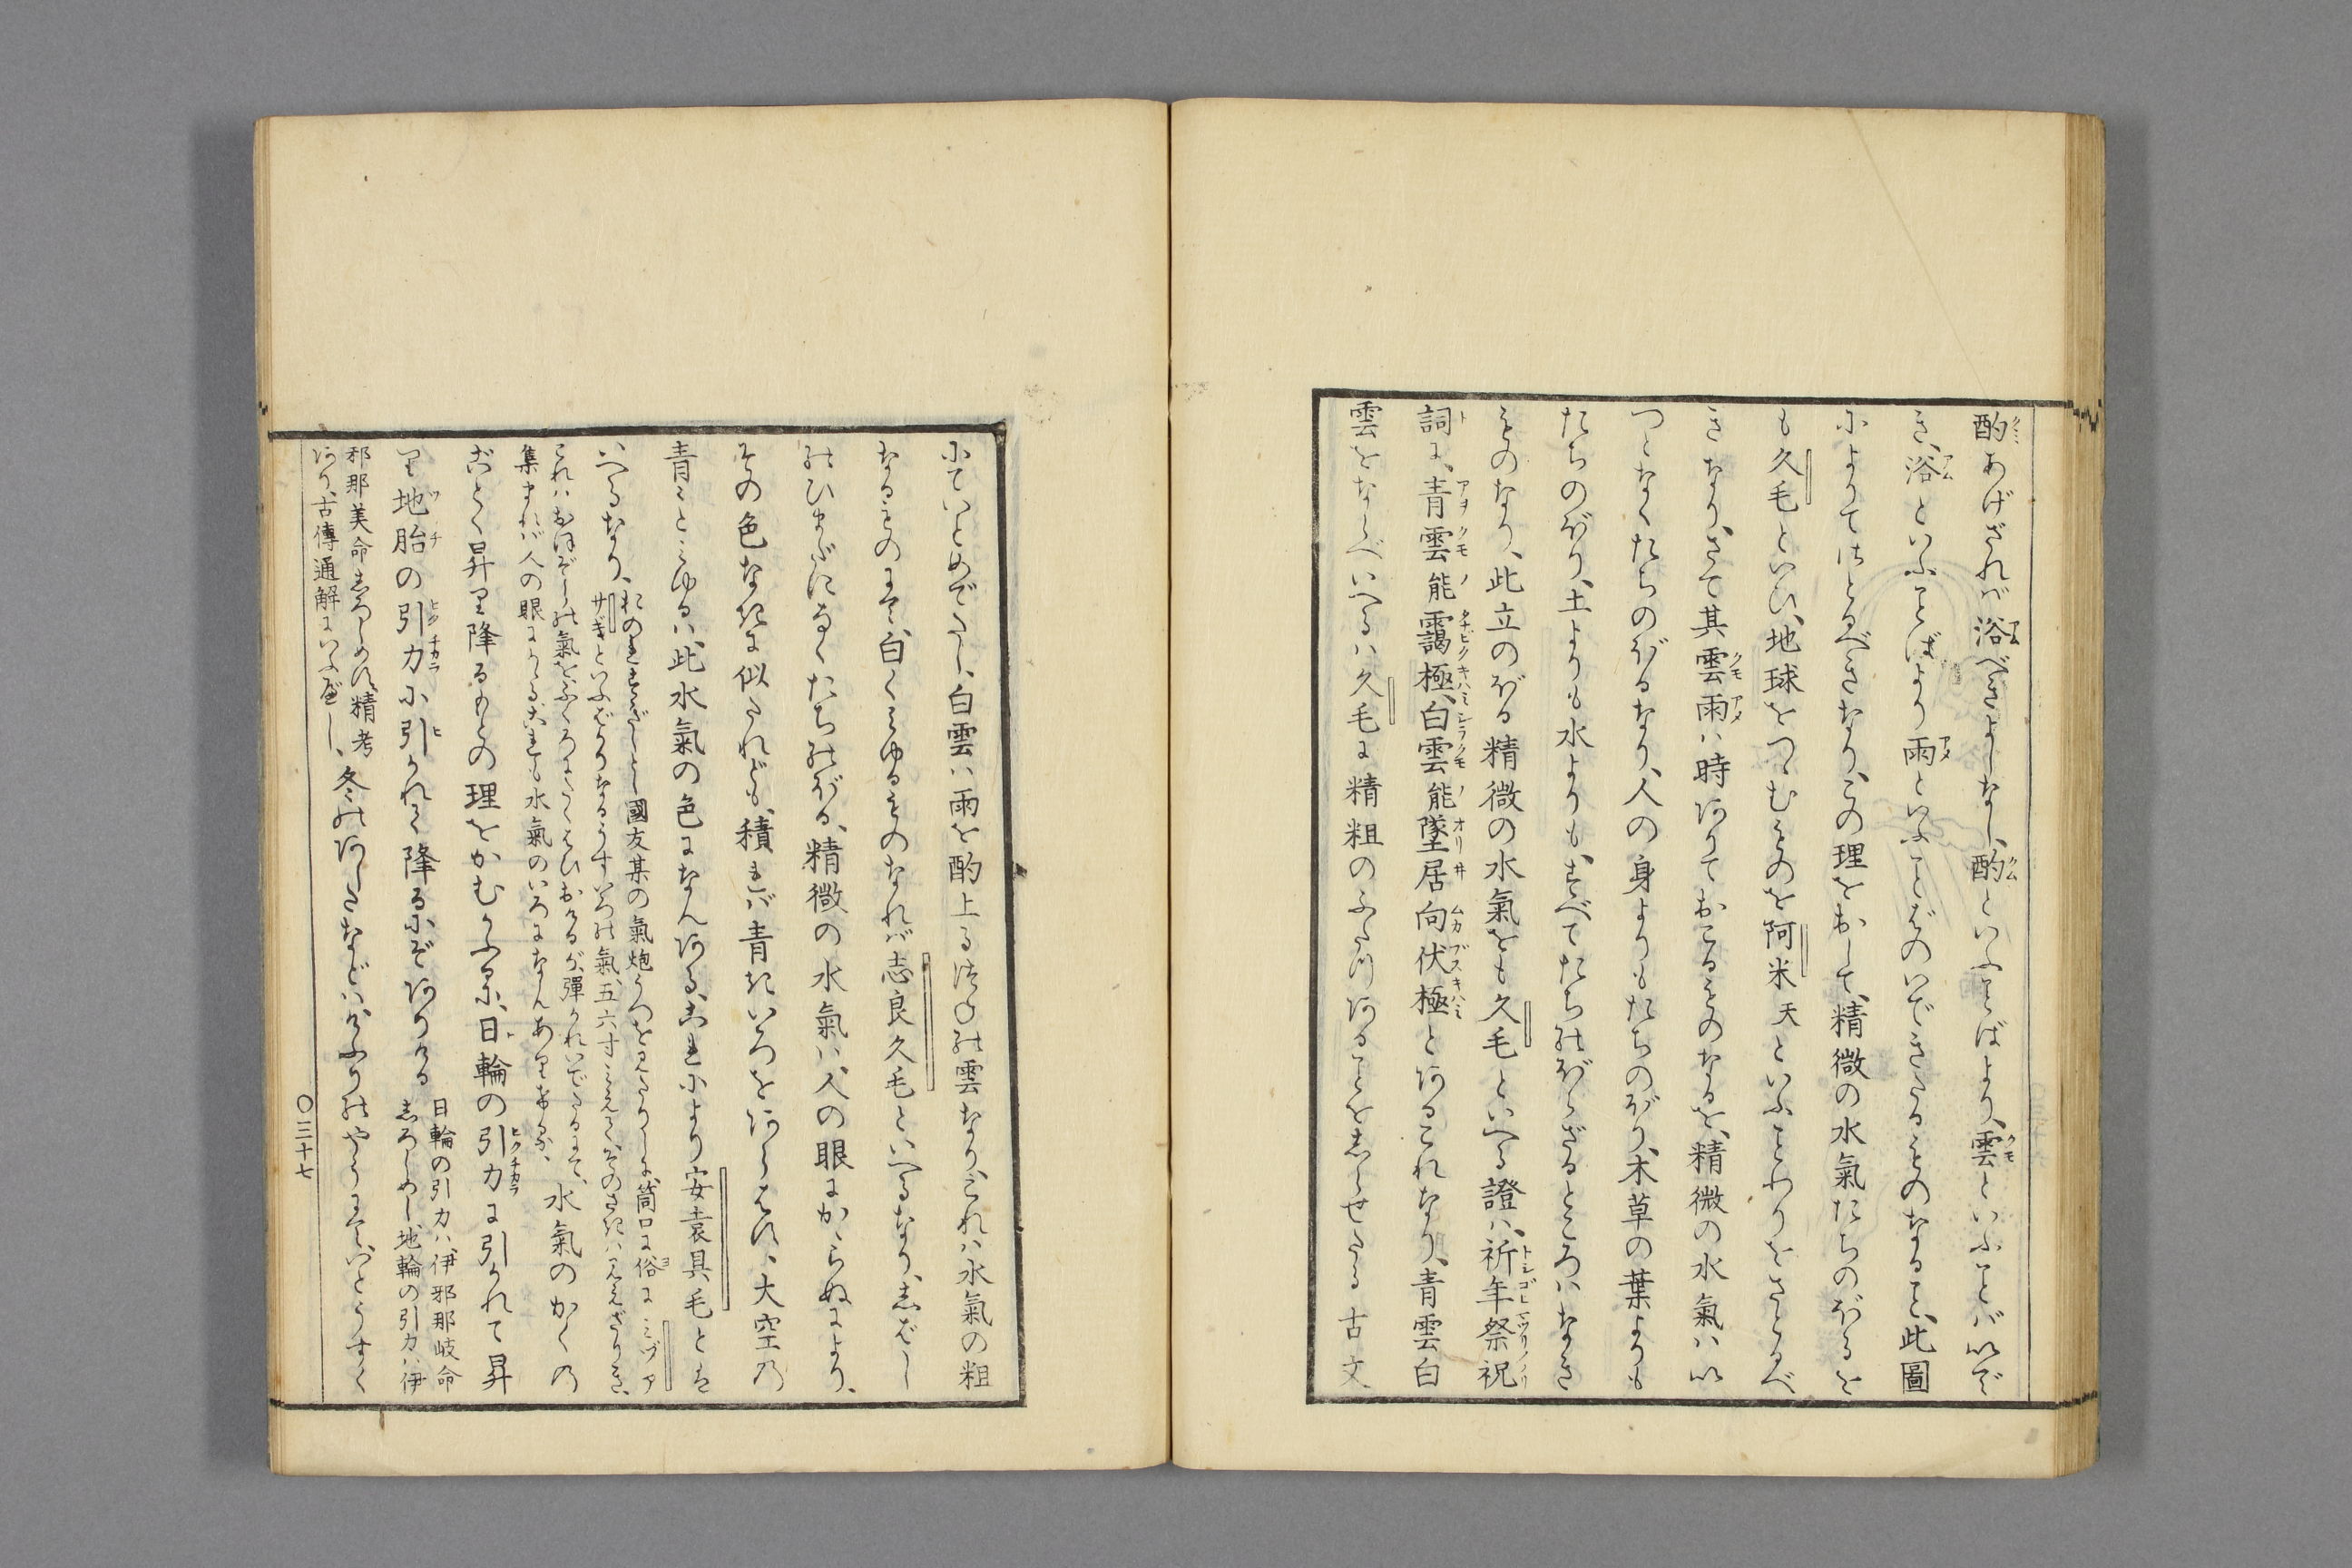 酌あげざれば浴べきよしなし、酌といふことばより、雲といふことバいで
き、浴といふことばより雨といふことばのいできたるものなること、此圖
によりてさとるべきなり、この理をおして、精微の水氣たちのぼるを
も久毛といひ、地球をつゝむものを阿米天といふことわりをさとるべ
きなり、さて其雲雨ハ時ありておこるものなるを、精微の水氣ハい
つとなくたちのぼるなり、人の身よりもたちのぼり、木草の葉よりも
たちのぼり、土よりも水よりも、すべてたちのぼらざるところハなき
ものなり、此立のぼる精微の水氣をも久毛といへる證ハ、祈年祭祝
詞に、青雲能靄極、白雲能墜居向伏極とあるこれなり、青雲白
雲をならべいへるハ久毛に精粗のふたつあることをしらせたる古文
にていとめでたし、白雲ハ雨を酌上るつねの雲なり、これハ水氣の粗
なるものにて、白くみゆるものなれバ志良久毛といへるなり、しばし
のひまだになくたちのぼる、精微の水氣ハ、人の眼にかゝらぬにより、
その色なきに似たれども、積れバ青きいろをあらはす、大空の
青々とみゆるハ、此水氣の色になんある、これにより安袁具毛とは
いへるなり、おのれはやとし國友某の氣炮うつを見たりしに、筒口に俗にミヅア
サギといふばかりなるうすいろの氣、五六寸みえて、そのさきハ見えざりき、
これハおほぞらの氣をふくろにたくはひおけるが、彈かれいでたるにて、水氣のかくの
集まれバ人の眼にかゝる、これも水氣のいろになんありける、
ごとく昇り降るもとの理をかむかふるに、日輪の引力に引かれて昇
り地胎の引力に引かれて降るにぞありける日輪の引力ハ、伊邪那岐命
しろしめし地輪の引力ハ伊
邪那美命しろしめす、精考
あり、古傳通解にいふべし、冬のあしたなどハけふりのやうにて、いとうすく
〇三十七